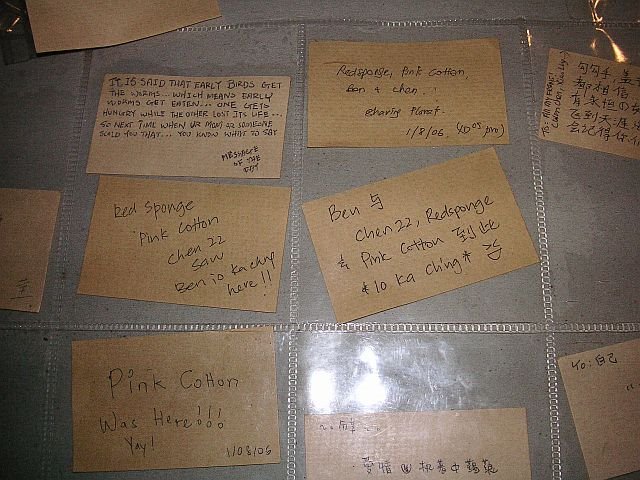 IT IS SAID THAT EARLY BIRDS GET
THE WORMS... WHICH MEANS EARLY
WORMS GET EATEN... ONE GETS
HUNGRY WHILE THE OTHER LOST ITS LIFE...
SO NEXT TIME WHEN UR MOM OR SOMEONE
SCOLD YOU THAT... YOU KNOW WHAT TO SAY
MESSAGE
OF THE
DAY
Redsponge, Pink Cotton,
Ben + chen..
sharing planet.
1/8/06
勾勾手
都相信
有永恒の
飞到天涯
会记得你
Red Sponge
Pink Cotton
Chen 22
saw
Ben io ka ching
here!!
Ben 与
Chen 22, Redsponge
& Pink Cotton 到此
* io ka ching *
Pink Cotton
Was Here!!!
Yay!
1/08/06
To: 自己